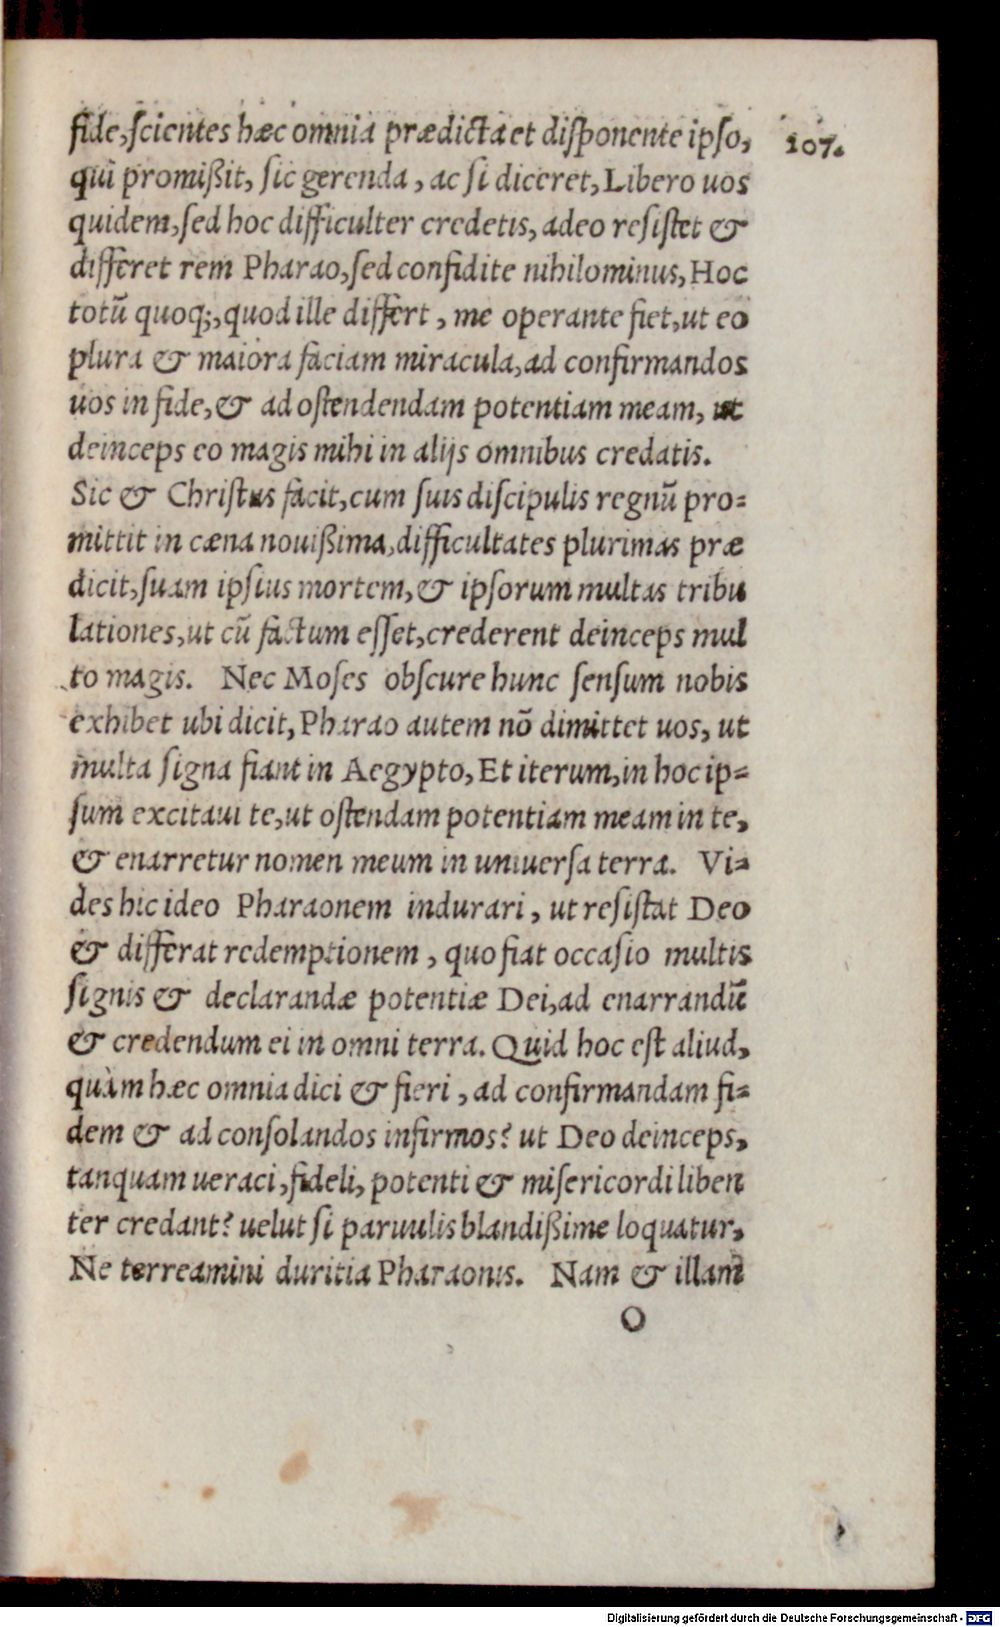 fide, scientes hæc omnia prædicta et disponente ipso,
107.
qui promißit, sic gerenda, ac si diceret, Libero uos
quidem, sed hoc difficulter credetis, adeo resistet &
differet rem Pharao, sed confidite nihilominus, Hoc
totũ quoq;, quod ille differt, me operante fiet, ut eo
plura & maiora faciam miracula, ad confirmandos
uos in fide, & ad ostendendam potentiam meam, ut
deinceps eo magis mihi in alijs omnibus credatis.
Sic & Christus facit, cum suis discipulis regnũ pro=
mittit in cæna nouißima, difficultates plurimas præ
dicit, suam ipsius mortem, & ipsorum multas tribu
lationes, ut cũ factum esset, crederent deinceps mul
to magis. Nec Moses obscure hunc sensum nobis
exhibet ubi dicit, Pharao autem nõ dimittet uos, ut
multa signa fiant in Aegypto, Et iterum, in hoc ip=
sum excitaui te, ut ostendam potentiam meam in te,
& enarretur nomen meum in uniuersa terra. Vi=
des hic ideo Pharaonem indurari, ut resistat Deo
& differat redemptionem, quo fiat occasio multis
signis & declarandæ potentiæ Dei, ad enarrandũ
& credendum ei in omni terra. Quid hoc est aliud,
quàm hæc omnia dici & fieri, ad confirmandam fi=
dem & ad consolandos infirmos? ut Deo deinceps,
tanquam ueraci, fideli, potenti & misericordi liben
ter credant? uelut si paruulis blandißime loquatur,
Ne terreamini duritia Pharaonis. Nam & illam
O
Digitalisierung gefördert durch die Deutsche Forschungsgemeinschaft - DFG